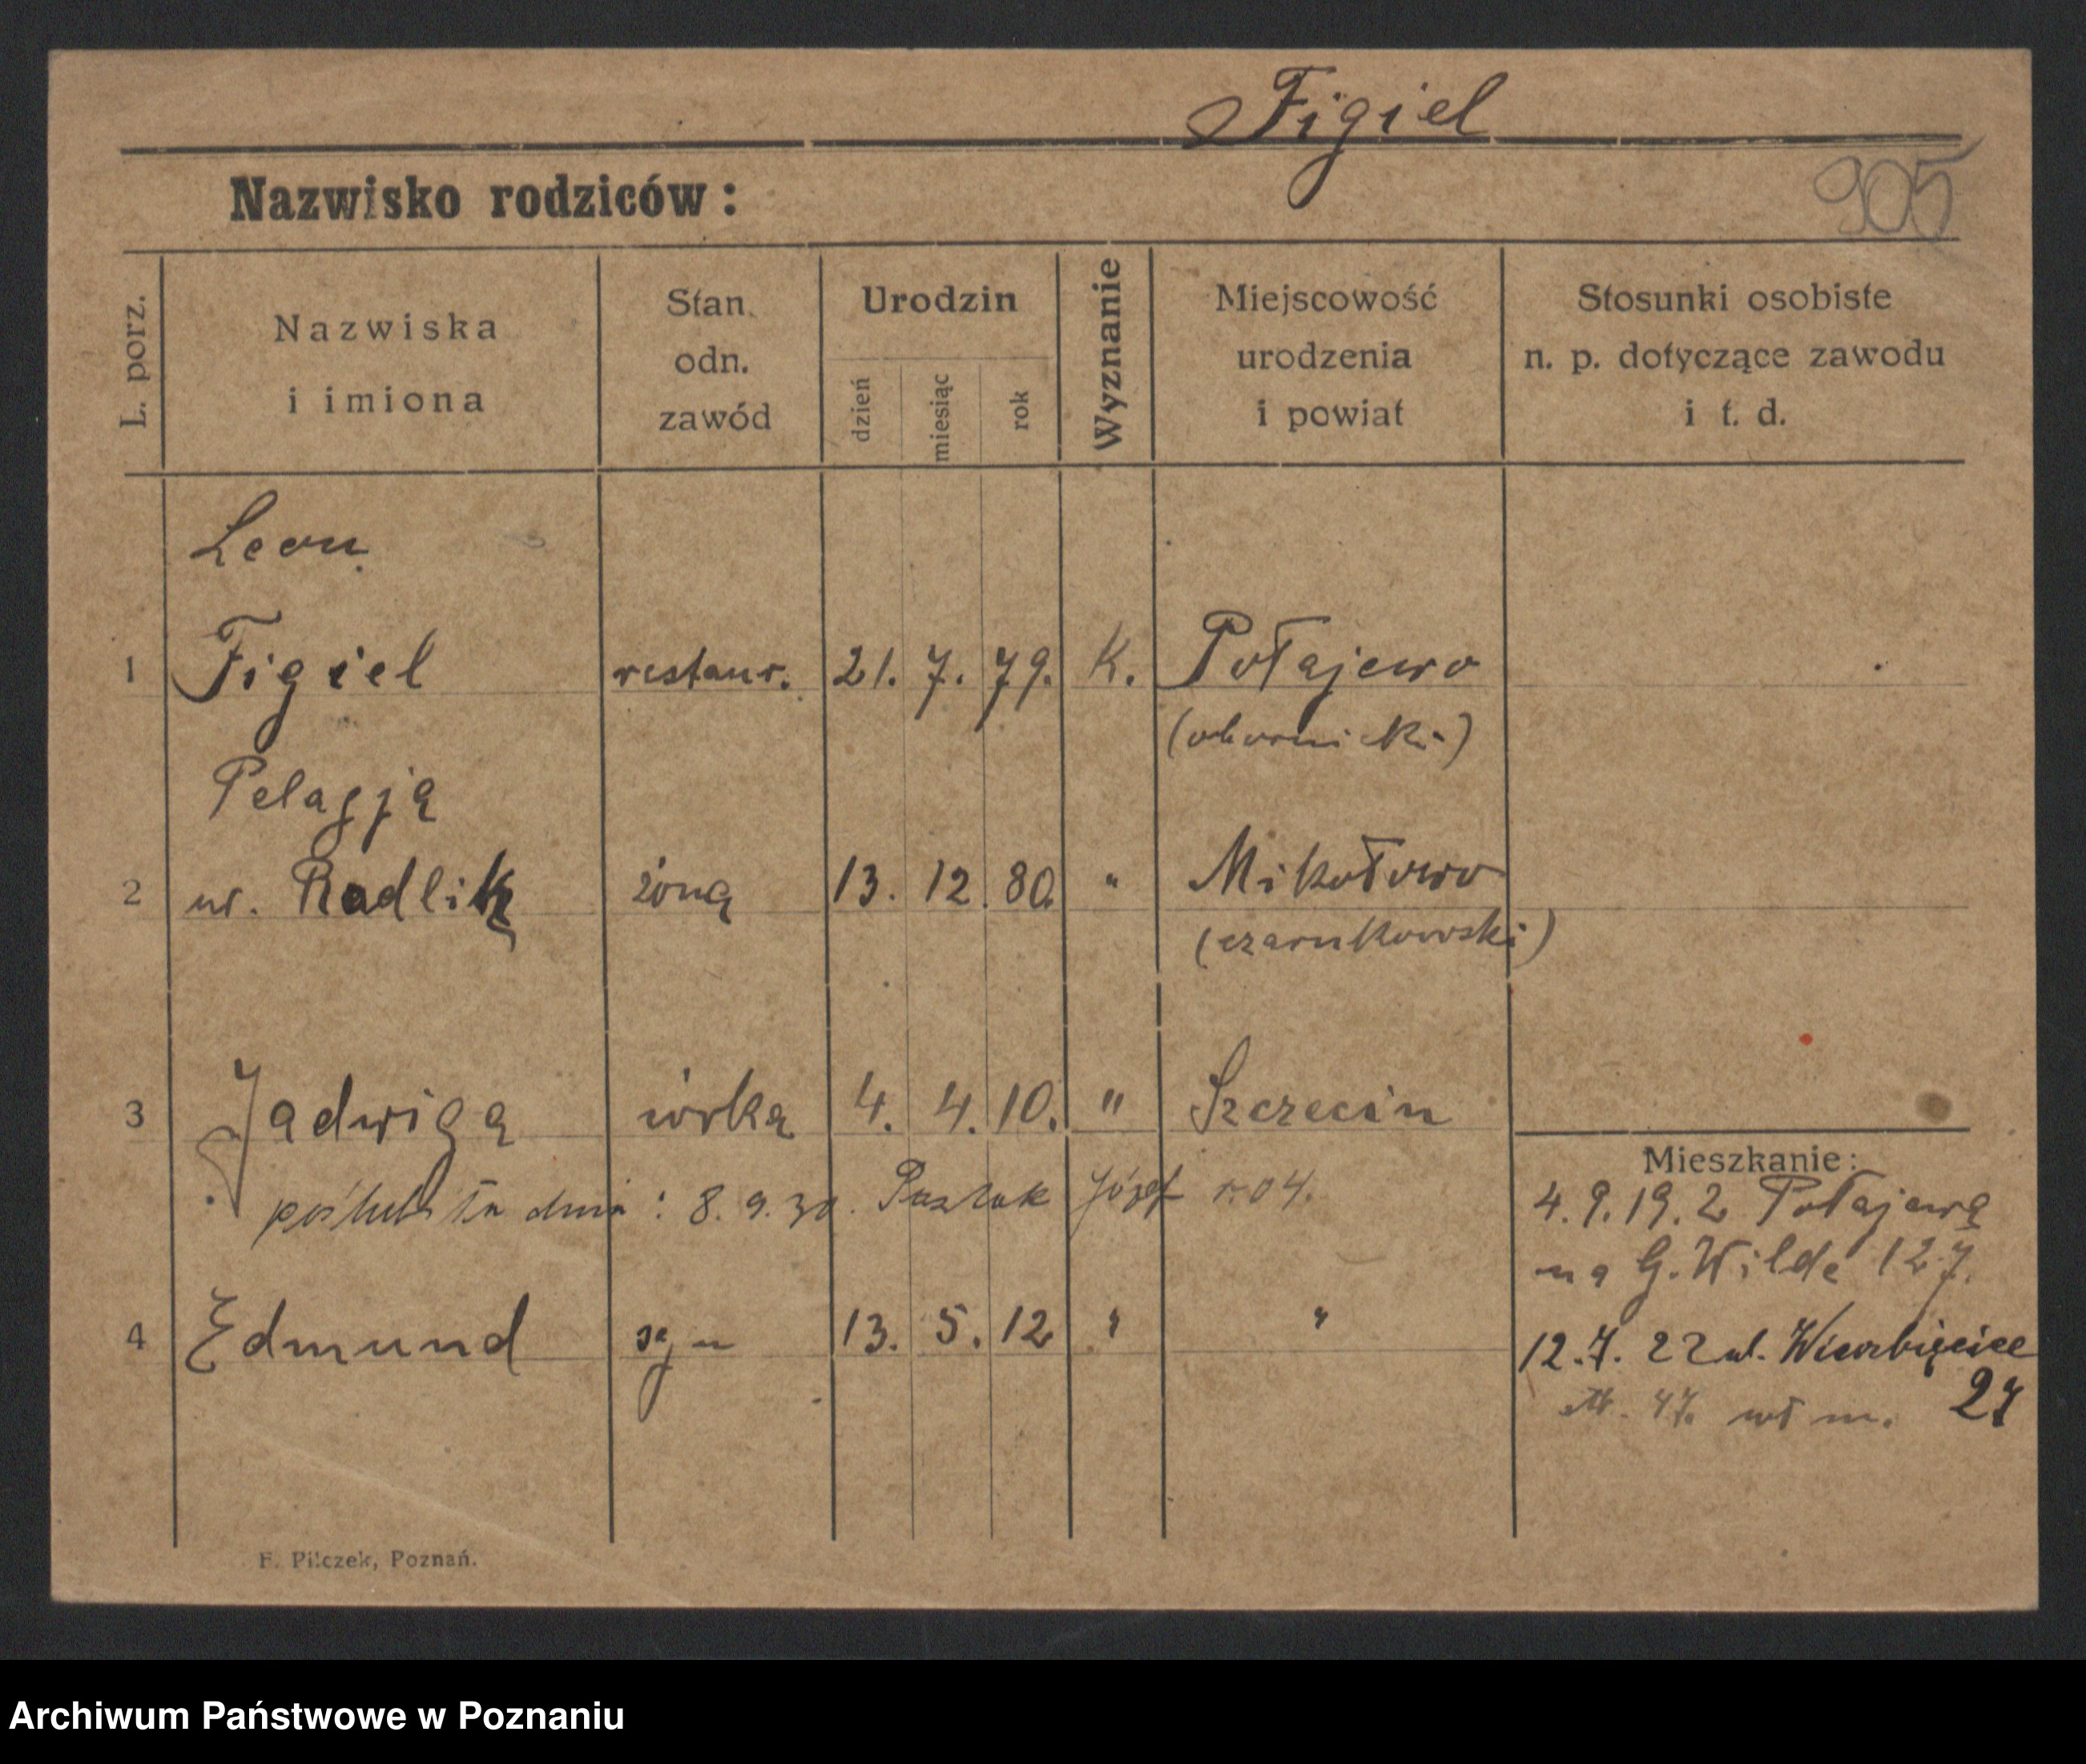 Figiel
905
Nazwisko rodziców:
L. porz.
Nazwiska
i imiona
Stan.
odn.
zawód
Urodzin
dzień
miesiąc
rok
Wyznanie
Miejscowość
urodzenia
i powiat
Stosunki osobiste
n. p. dotyczące zawodu
i t. d.
Leon
1 Figiel restaur. 21. 7. 79. K. Połajewo
(obornicki)
Pelagją
2 ur. Radlik żoną 13. 12. 80. " Mikołowo
(czarnkowski)
3 Jadwigą córką 4. 4. 10. " Szczecin
poślubiła dnia: 8.9.30. Paszlak Józef r. 04.
4 Edmund syn 13. 5. 12 " "
Mieszkanie:
4.9.19. z Połajewa
na G. Wilde 127.
12.7.22 ul. Wierzbięcice
47. wł m. 27
F. Pilczek, Poznań.
Archiwum Państwowe w Poznaniu